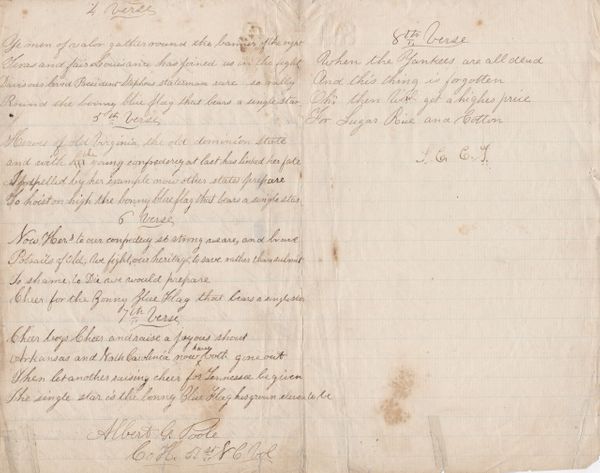 4 Verse
Ye men of valor gather round the banner of the right
Texas and fair Louisiana has joined us in the fight
Davis our loved President Stephens statesman rare so rally
Round the bonny blue flag that bears a single star
5th Verse
Heroes of old Virginia the old dominion state
and with the young confederacy at last has linked her fate
Impelled by her example now other states prepare
To hoist on high the bonny blue flag that bears a single star
6 Verse
Now to our confedercy so strong we are, and brave
of old, We fight, our heritage to save rather than submit
To shame, to Die we would prepare
Cheer for the Bonny Blue Flag that bears a single star
7th Verse
Cheer boys Cheer and raise a joyous shout
Arkansas and North Carolinia now have both gone out
Then let another raising cheer for Tennessee be given
The single star is the bonny Blue Flag has grown eleven to be
Albert G. Poole
Co H. N C Vol
8th Verse
When the Yankees are all dead
And this thing is forgotten
Oh, then will get a highs price
For Sugar Rice and Cotton